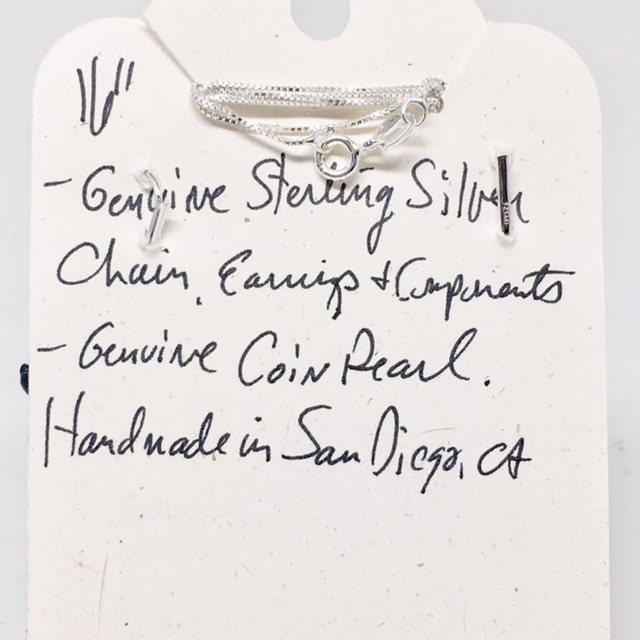 16"
- Genuine Sterling Silver
Chain, Earrings + Components
- Genuine Coin Pearl.
Handmade in San Diego, CA